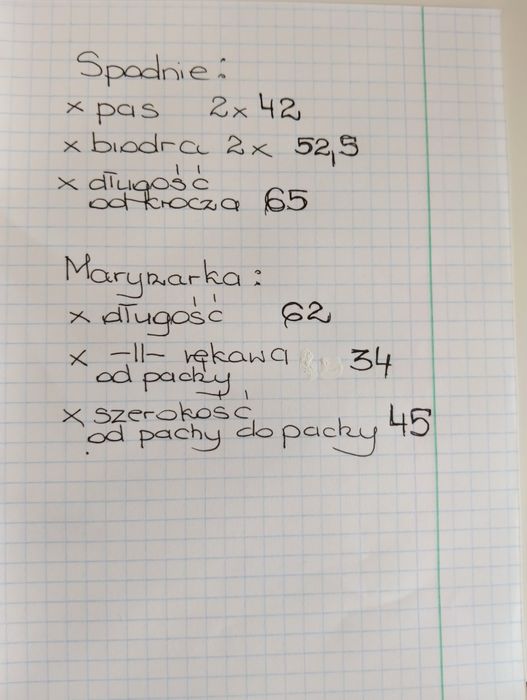 Spodnie:
x pas 2x 42
x biodra 2x 52,5
x długość
od krocza 65
Marynarka:
x długość 62
x -II- rękawa 34
od pachy
x szerokość 45
od pachy do pachy